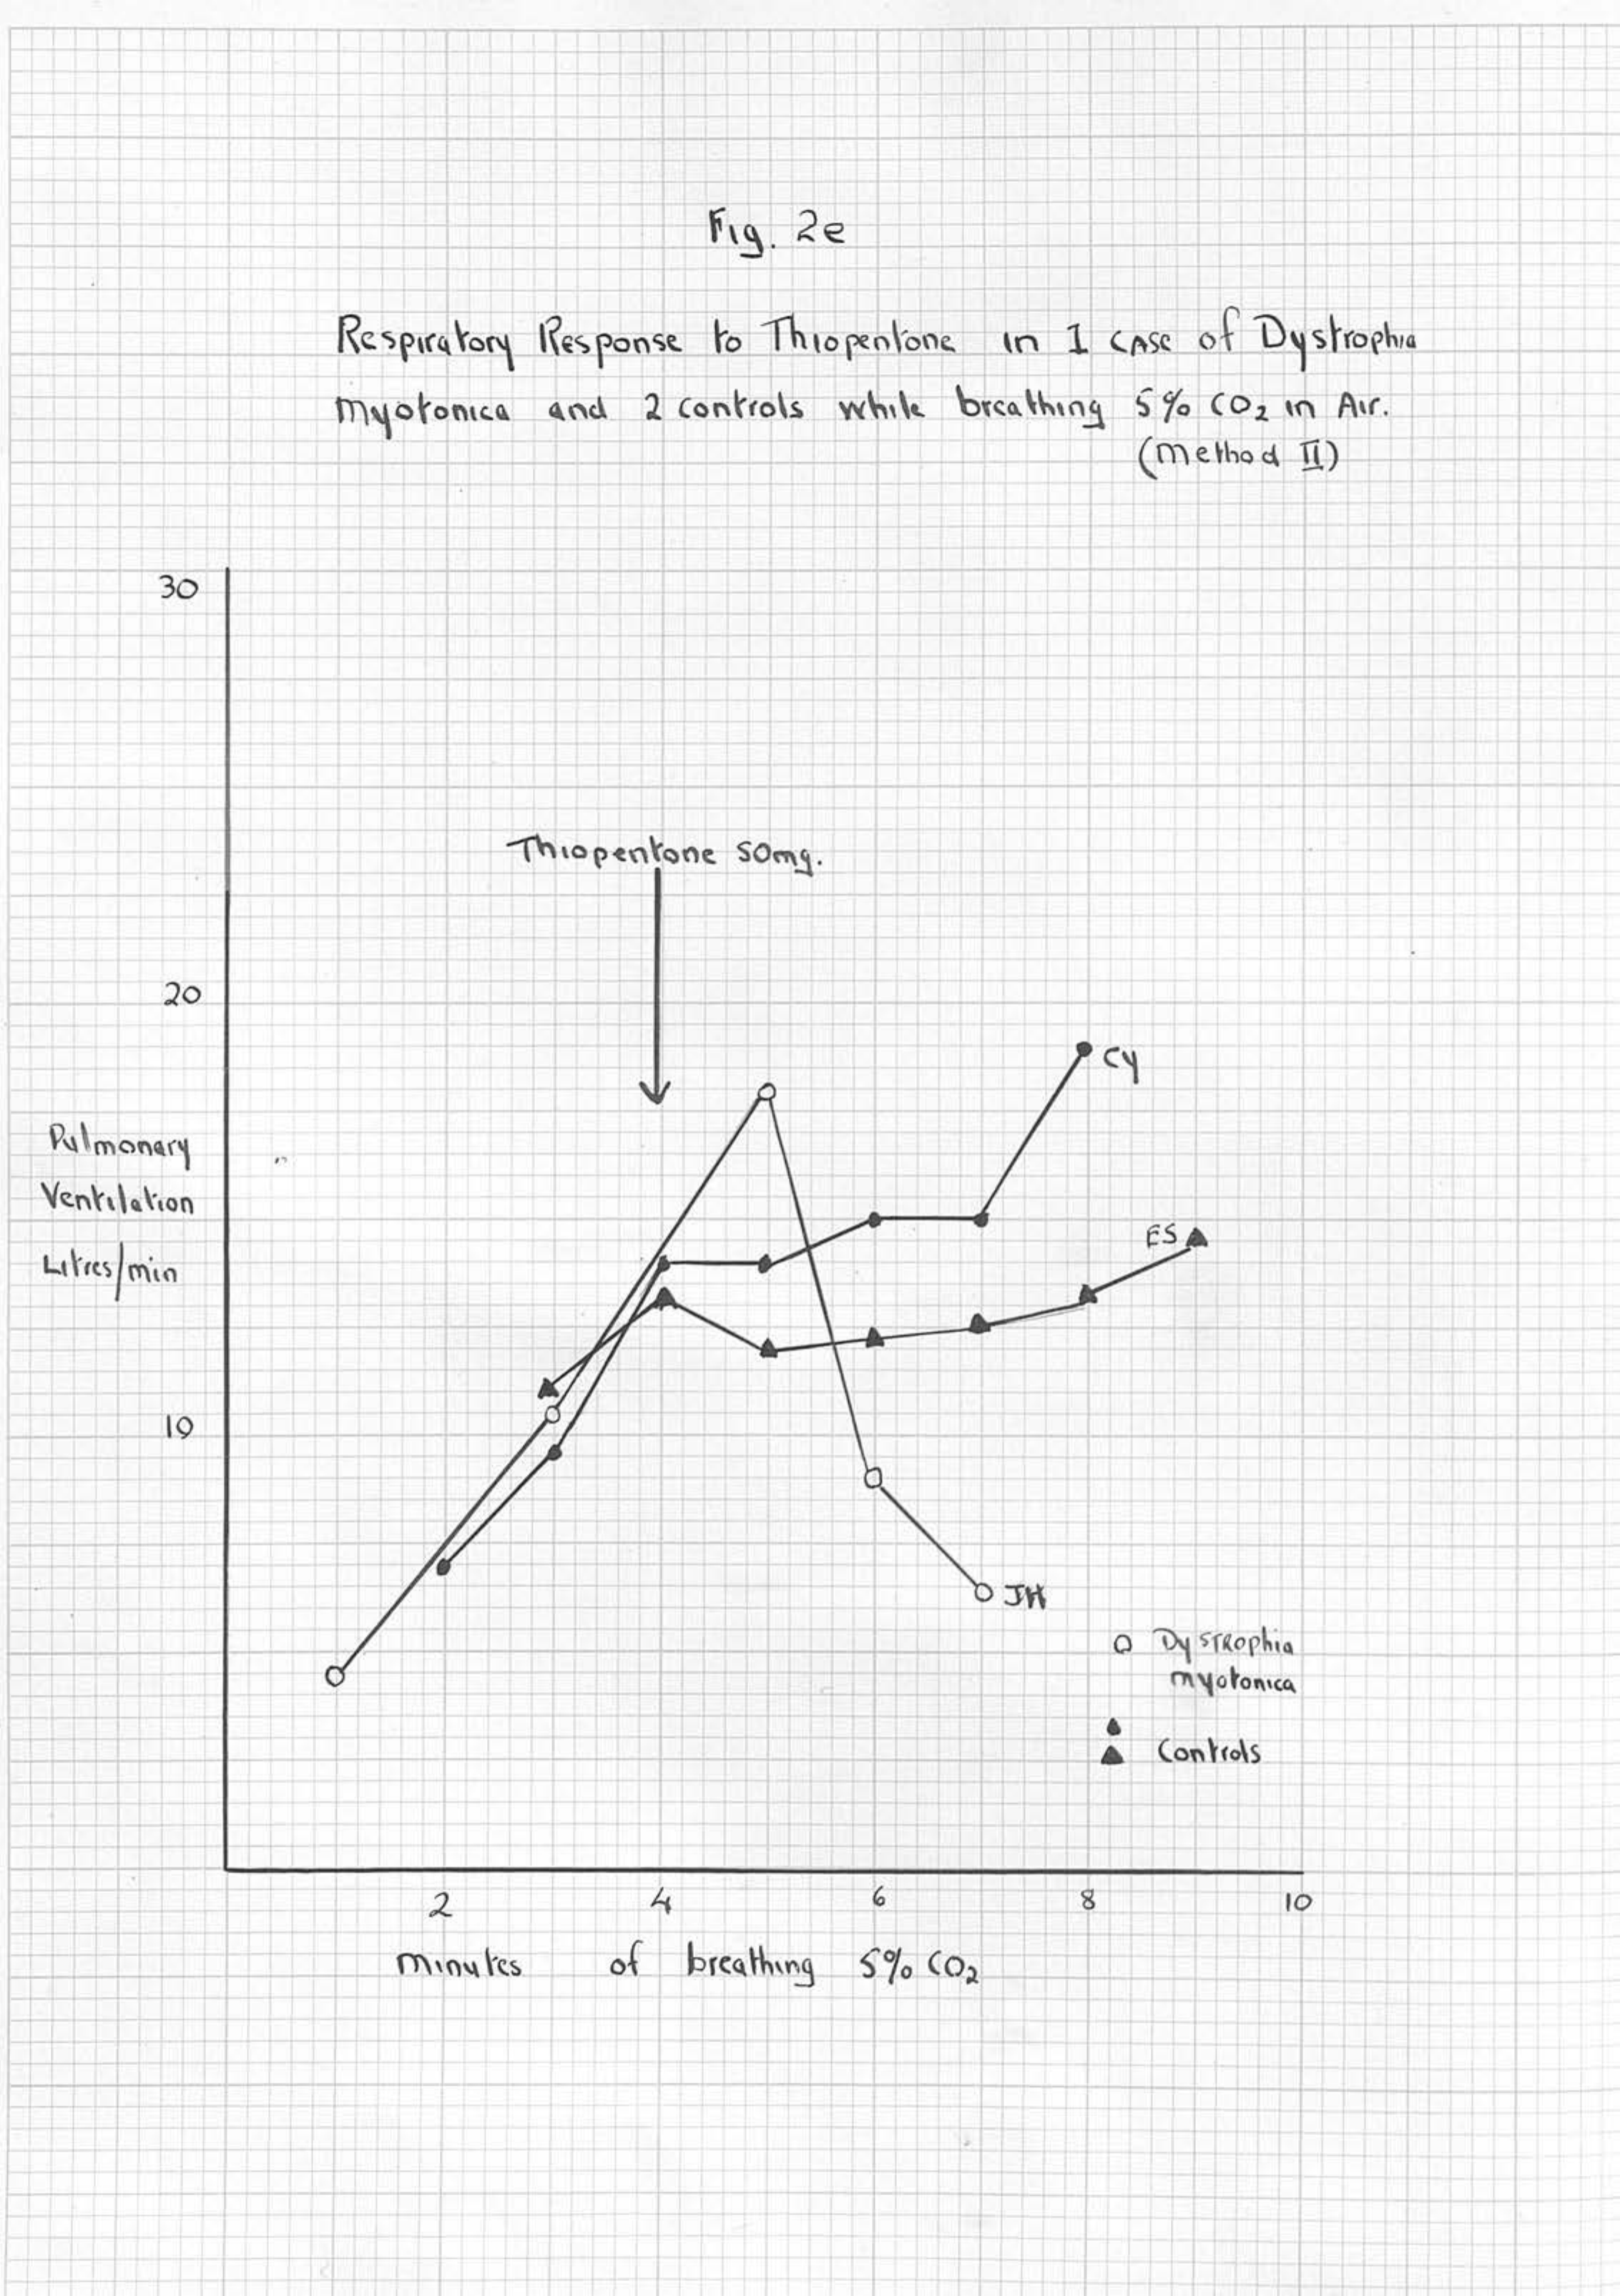 Fig. 2e
Respiratory Response to Thiopentone in 1 case of Dystrophia
myotonica and 2 controls while breathing 5% CO₂ in Air.
(Method II)
30
Thiopentone 50mg.
20
CY
Pulmonary
Ventilation
Litres/min
ES
10
JH
Dystrophia
myotonica
Controls
2 4 6 8 10
minutes of breathing 5% CO₂